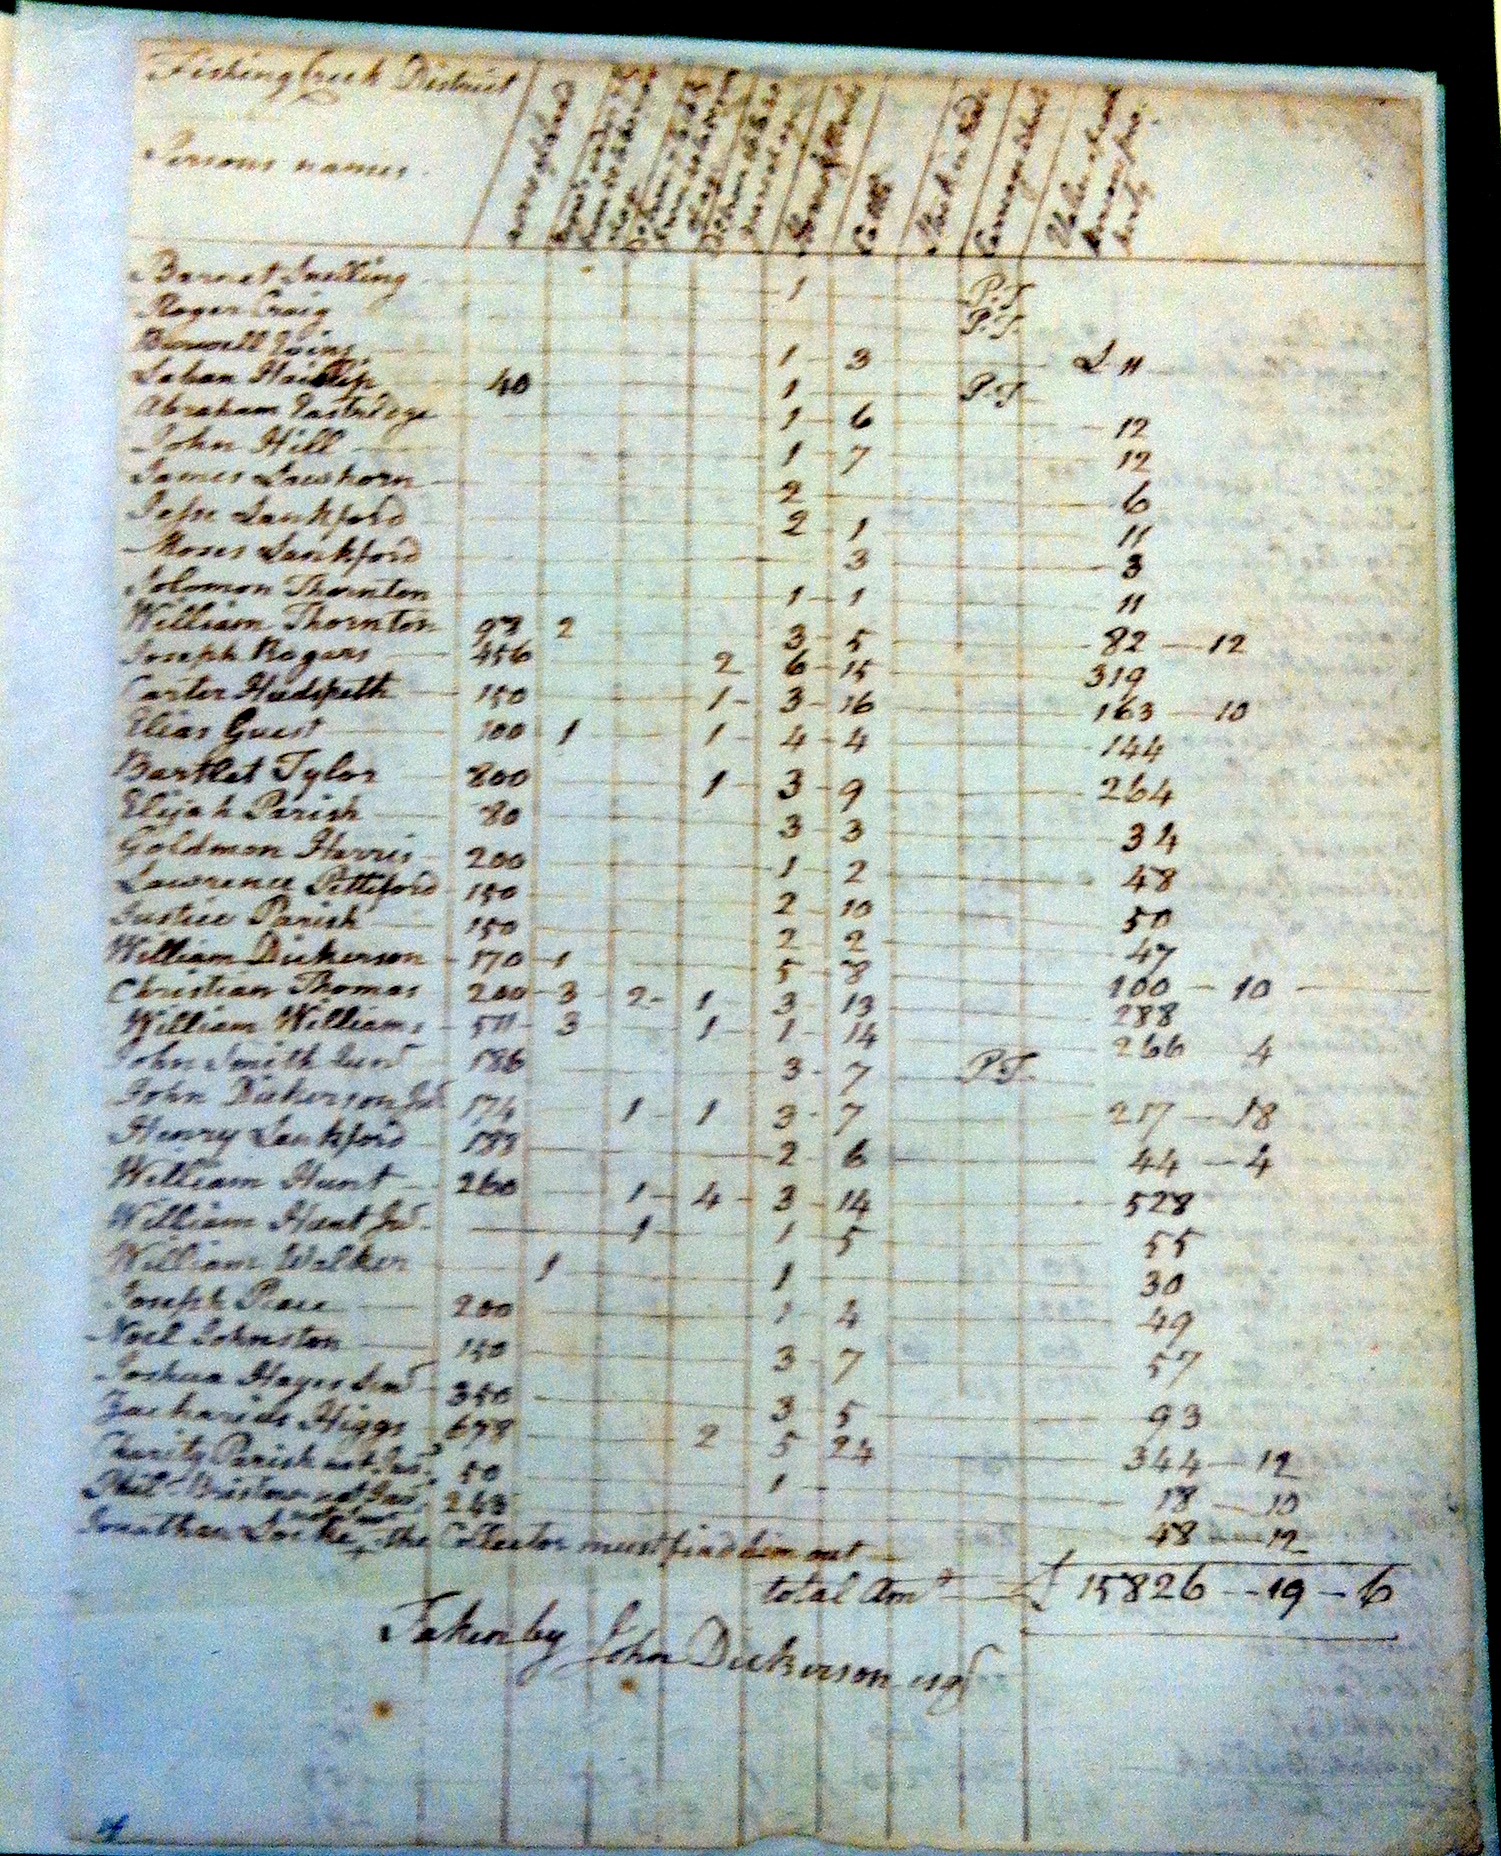 Fishing Creek District
Persons names.
Acres of Land
Cattle
Carriage Wheels
Barnet Snelling 1 P.T.
Roger Craig P.T.
Burwell Goins 1 3 £ 11
Laban Haislip 40 1 P.T.
Abraham Eastridge 1 6 12
John Hill 1 7 12
James Lawhorn 2 6
Jesse Lankford 2 1 11
Moses Lankford 3 3
Solomon Thornton 1 1 11
William Thornton 2 3 5 82 12
Joseph Rogers 456 2 6 15 319
Carter Hudspeth 150 1 3 16 163 10
Elias Guest 100 1 1 4 4 144
Bartlet Tylor 800 1 3 9 264
Elijah Parish 80 3 3 34
Goldmon Harris 200 1 2 48
Lawrence Pettiford 150 2 10 50
Justice Parish 150 2 2 47
William Dickerson 170 1 5 8 100 10
Christian Thomas 200 3 2 1 3 13 288
William Williams 511 3 1 1 14 266 4
John Smith Junr 186 3 7 P.T.
John Dickerson Jur 174 1 1 3 7 217 18
Henry Lankford 2 6 44 4
William Hunt 260 1 4 3 14 528
William Hunt Jur 1 1 5 55
William Walker 1 1 30
Joseph Pace 200 1 4 49
Noel Johnston 150 3 7 57
Joshua Hayes Senr 350 3 5 93
Zacharias Higgs 678 2 5 24 344 12
Charity Parish not Inv. 50 1 18 10
Phil. Bristow not Inv. 263 48 12
Jonathan Locke not Inv the Collector must find him out
total Amt £ 15826 19 6
Taken by John Dickerson esqr